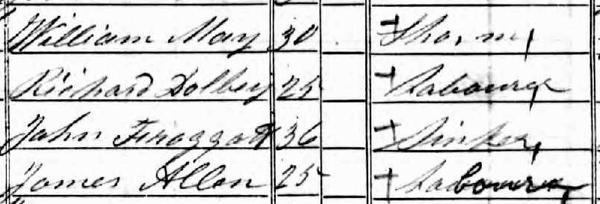 William May 30
Richard Dolby 25 Labourer
John Froggatt 36 Sinker
James Allen 25 Labourer